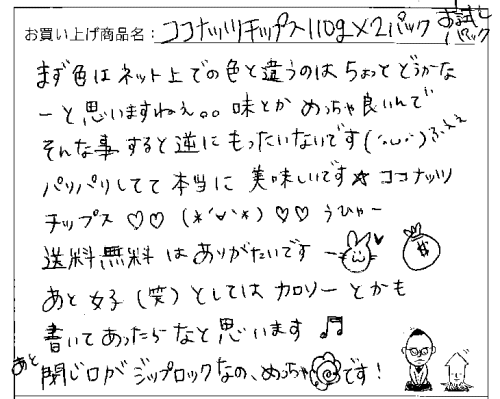 お買い上げ商品名：ココナッツチップス110g×2パック お試しパック
まず色はネット上での色と違うのはちょっとどうかな
ーと思いますねぇ。。味とかめっちゃ良いんで
そんな事すると逆にもったいないです(´･ω･`)ふぇぇ
パリパリしてて本当に美味しいです☆ココナッツ
チップス♡♡(*´∀`*)♡♡うひゃー
送料無料はありがたいですー
あと女子(笑)としてはカロリーとかも
書いてあったらなと思います♫
あと閉じ口がジップロックなの、めっちゃ◎です！